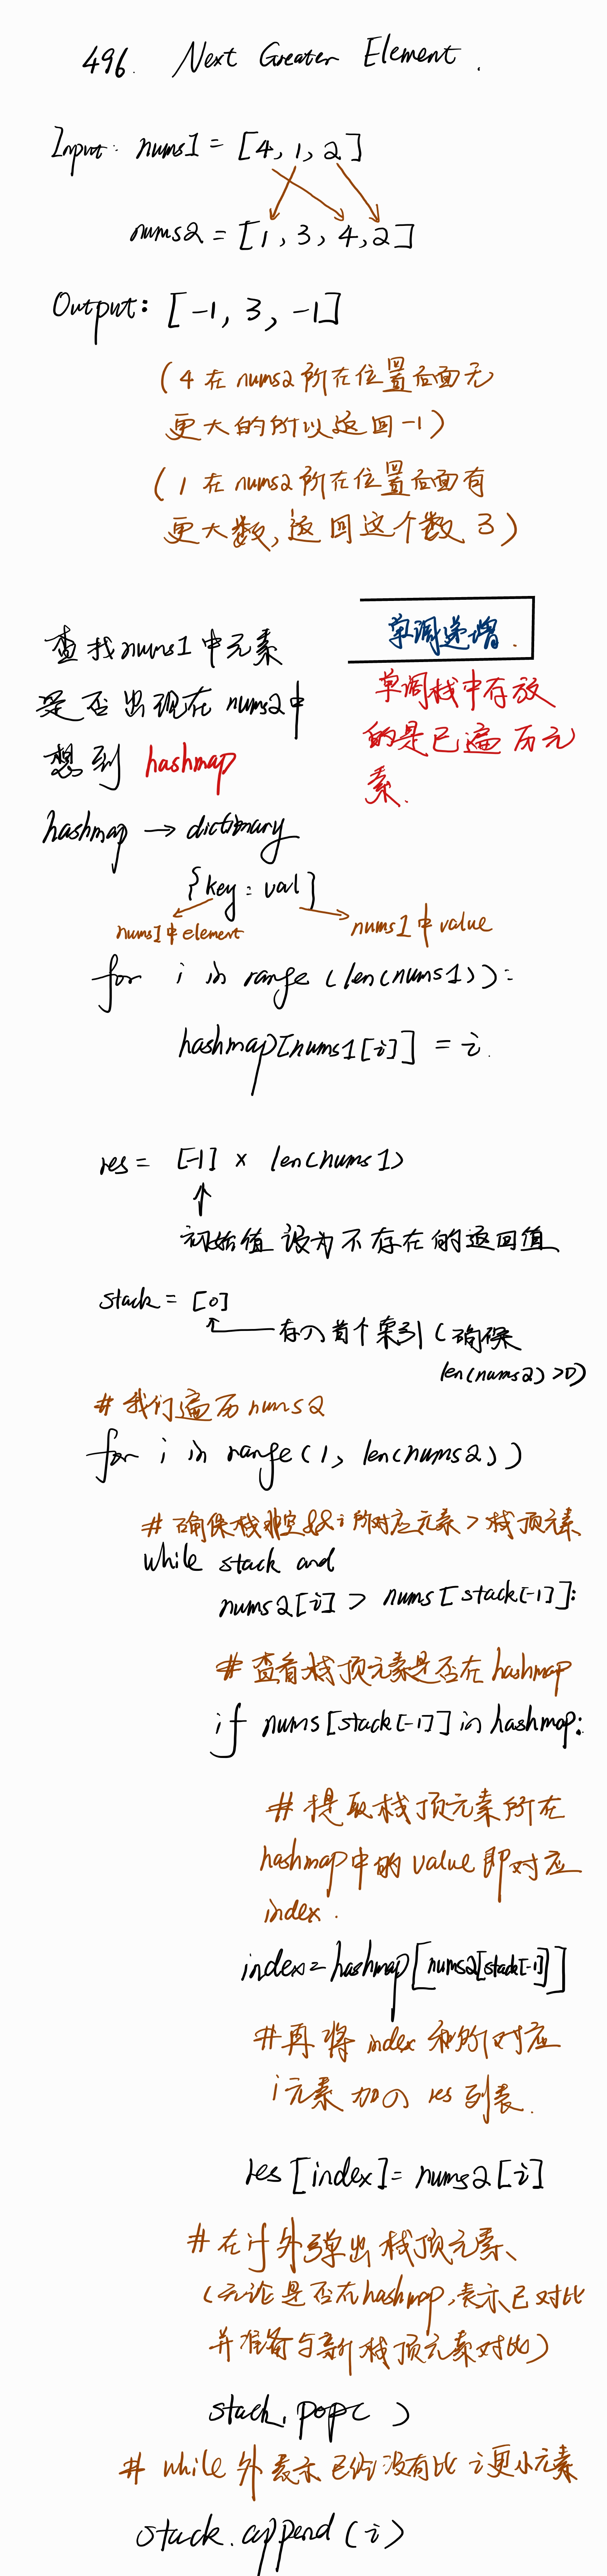 496. Next Greater Element.
Input: nums1 = [4, 1, 2]
nums2 = [1, 3, 4, 2]
Output: [-1, 3, -1]
(4 在 nums2 所在位置后面无
更大的所以返回 -1)
(1 在 nums2 所在位置后面有
更大数, 返回这个数 3)
查找 nums1 中元素
是否出现在 nums2 中
想到 hashmap
单调递增.
单调栈中存放
的是已遍历元
素.
hashmap → dictionary
{key: val}
nums1 中 element
nums1 中 value
for i in range (len(nums1)):
hashmap[nums1[i]] = i.
res = [-1] × len(nums1)
初始值设为不存在的返回值
stack = [0]
存入首个索引 (确保
len(nums2) >0)
# 我们遍历 nums2
for i in range (1, len(nums2))
# 确保栈非空 && i 所对应元素 > 栈顶元素
while stack and
nums2[i] > nums[stack[-1]]:
# 查看栈顶元素是否在 hashmap
if nums[stack[-1]] in hashmap:
# 提取栈顶元素所在
hashmap 中的 value 即对应
index.
index = hashmap[nums2[stack[-1]]]
# 再将 index 和所对应
i 元素加入 res 列表.
res[index] = nums2[i]
# 在 if 外弹出栈顶元素、
(无论是否在 hashmap, 表示已对比
并准备与新栈顶元素对比)
stack.pop( )
# while 外表示已经没有比 i 更小元素
stack.append(i)